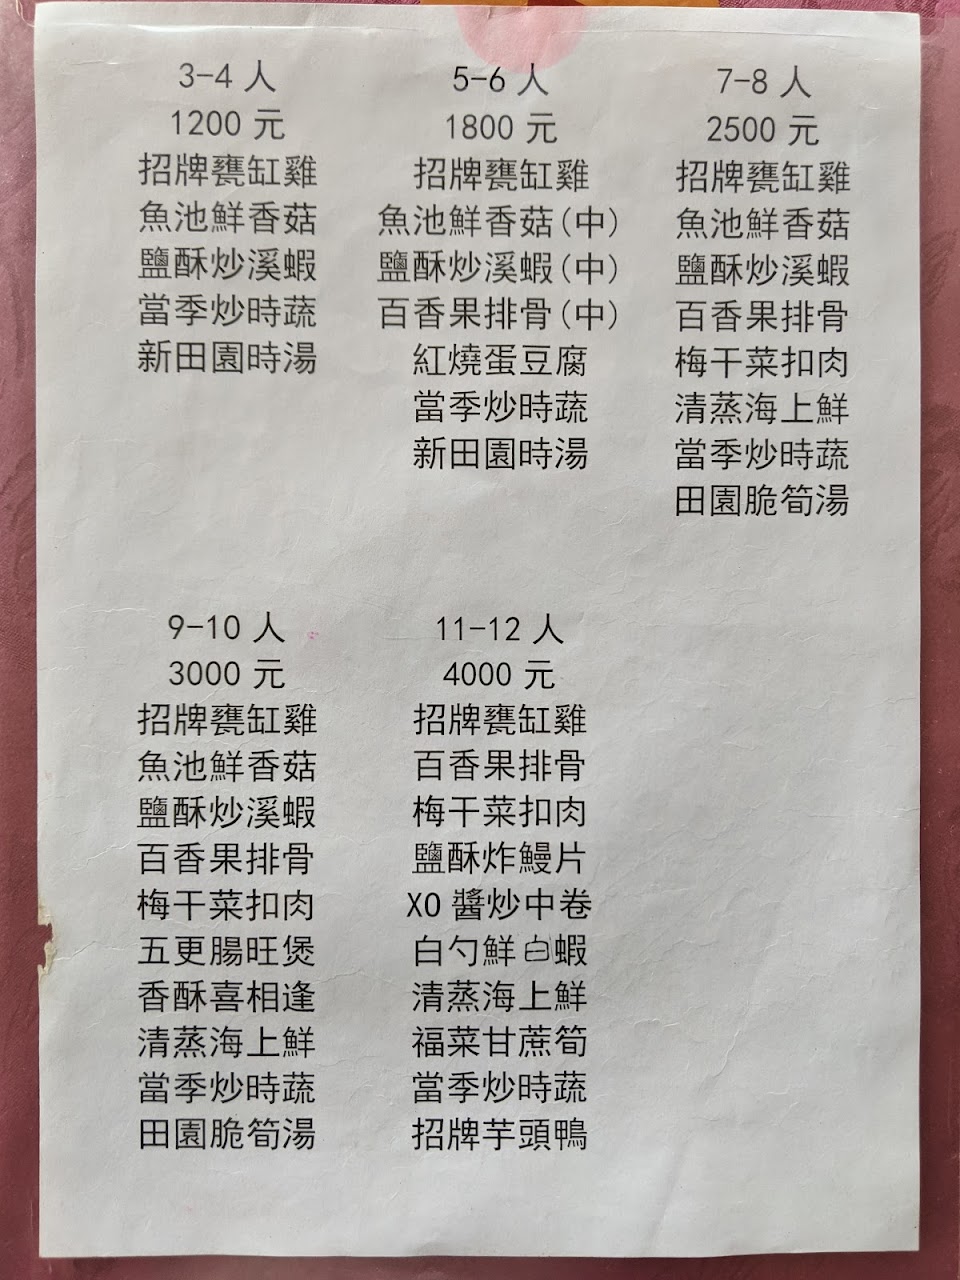 3-4 人
1200 元
招牌甕缸雞
魚池鮮香菇
鹽酥炒溪蝦
當季炒時蔬
新田園時湯
5-6 人
1800 元
招牌甕缸雞
魚池鮮香菇(中)
鹽酥炒溪蝦(中)
百香果排骨(中)
紅燒蛋豆腐
當季炒時蔬
新田園時湯
7-8 人
2500 元
招牌甕缸雞
魚池鮮香菇
鹽酥炒溪蝦
百香果排骨
梅干菜扣肉
清蒸海上鮮
當季炒時蔬
田園脆筍湯
9-10 人
3000 元
招牌甕缸雞
魚池鮮香菇
鹽酥炒溪蝦
百香果排骨
梅干菜扣肉
五更腸旺煲
香酥喜相逢
清蒸海上鮮
當季炒時蔬
田園脆筍湯
11-12 人
4000 元
招牌甕缸雞
百香果排骨
梅干菜扣肉
鹽酥炸鰻片
XO 醬炒中卷
白勺鮮白蝦
清蒸海上鮮
福菜甘蔗筍
當季炒時蔬
招牌芋頭鴨